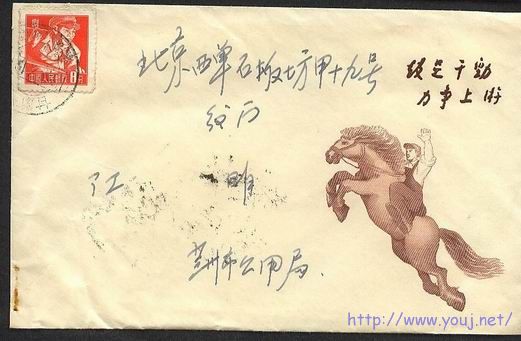 中国人民邮政 8分
北京西单石板坊甲十九号
红门
江 明
兰州市公用局.
鼓足干劲
力争上游
http://www.youj.net/